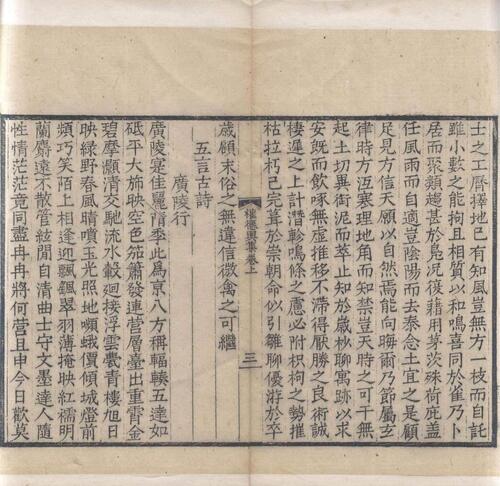 士之工曆擇地已有知風豈無方一枝而自託
雖小數之能拘且相質以和鳴喜同於雀乃卜
居而聚類趨甚於鳧況復藉用茅茨殊荷庇蓋
任風雨而自適豈陰陽而去泰念土宜之是顧
足見方信天願以自然焉能向晦爾乃節屬玄
律時方沍寒理地角而知禁豈天時之可干無
起土切異銜泥而萃止知於歲杪聊寓跡以求
安既而飲啄無虛推移不滯得厭勝之良術誠
棲遲之上計濳軫鳴條之慮必附枳枸之勢摧
枯拉朽已完葺於崇朝命似引雛聊優游於卒
權德輿集卷上 三
歲願末俗之無違信微禽之可繼
五言古詩
廣陵行
廣陵寔佳麗隋季此為京八方稱輻輳五達如
砥平大斾映空色笳簫發連營層臺出重霄金
碧摩顥清交馳流水轂迴接浮雲甍青樓旭日
映綠野春風晴噴玉光照地顰蛾價傾城燈前
頻巧笑陌上相逢迎飄飄翠羽薄掩映紅襦明
蘭麝遠不散管絃閒自清曲士守文墨達人隨
性情茫茫竟同盡冉冉將何營且申今日歡莫